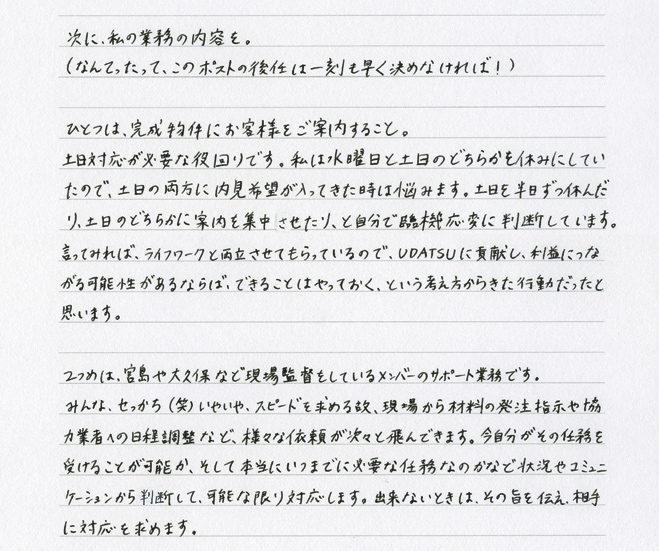 次に、私の業務の内容を。
(なんてったって、このポストの後任は一刻も早く決めなければ！)
ひとつは、完成物件にお客様をご案内すること。
土日対応が必要な役回りです。私は水曜日と土日のどちらかを休みにしてい
たので、土日の両方に内見希望が入ってきた時は悩みます。土日を半日ずつ休んだ
り、土日のどちらかに案内を集中させたり、と自分で臨機応変に判断しています。
言ってみれば、ライフワークと両立させてもらっているので、UDATSUに貢献し、利益につな
がる可能性があるならば、できることはやっておく、という考え方からきた行動だったと
思います。
2つめは、宮島や大久保など現場監督をしているメンバーのサポート業務です。
みんな、せっかち(笑)いやいや、スピードを求める故、現場から材料の発注指示や協
力業者への日程調整など、様々な依頼が次々と飛んできます。今自分がその任務を
受けることが可能か、そして本当にいつまでに必要な任務なのかなど状況やコミュニ
ケーションから判断して、可能な限り対応します。出来ないときは、その旨を伝え、相手
に対応を求めます。